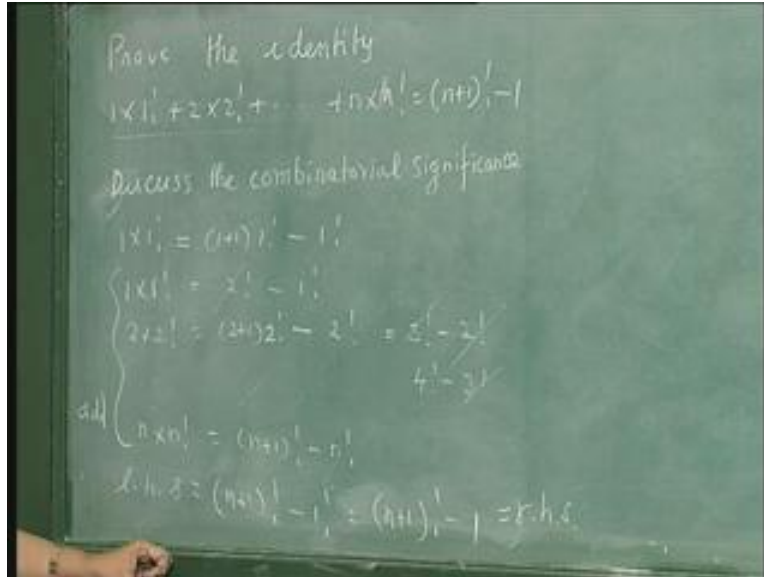 Prove the identity
1×1! + 2×2! + ⋯ + n×n! = (n+1)! - 1
Discuss the combinatorial significance
1×1! = (1+1) 1! - 1!
1×1! = 2! - 1!
2×2! = (2+1) 2! - 2! = 3! - 2!
4! - 3!
add
n×n! = (n+1)! - n!
l.h.s = (n+1)! - 1! = (n+1)! - 1 = r.h.s.